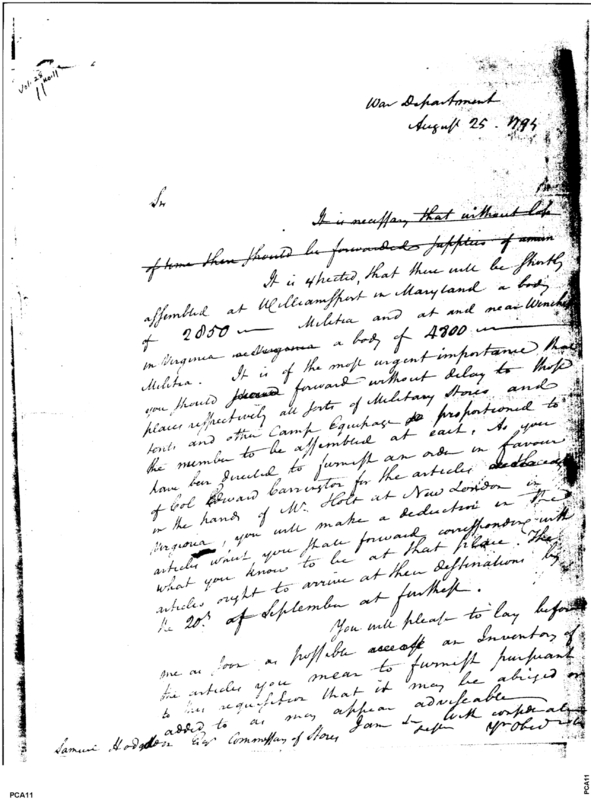 Vol. 28
War Department
August 25. 1794
Sir
It is necessary that without loss
of time there should be forwarded supplies of
It is expected, that there will be shortly
assembled at Williamsport in Maryland a body
of 2850 Militia and at and near Winches
in Virginia a body of 4800
Militia. It is of the most urgent importance that
you should forward without delay to those
places respectively all sorts of Military Stores and
tents and other Camp Equipage proportioned to
the number to be assembled at each. As you
have been directed to furnish an order in favour
of Col Edward Carrington for the articles
in the hands of Mr. Holt at New London in
Virginia, you will make a deduction in the
articles which you shall forward corresponding with
what you know to be at that place. The
articles ought to arrive at their destinations by
the 20th of September at furthest.
You will please to lay before
me as soon as possible an Inventory of
the articles you mean to furnish pursuant
to this requisition that it may be abriged or
added to as may appear adviseable
Samuel Hodgdon Esqr Commissary of Stores I am Sir with
PCA11
PCA11